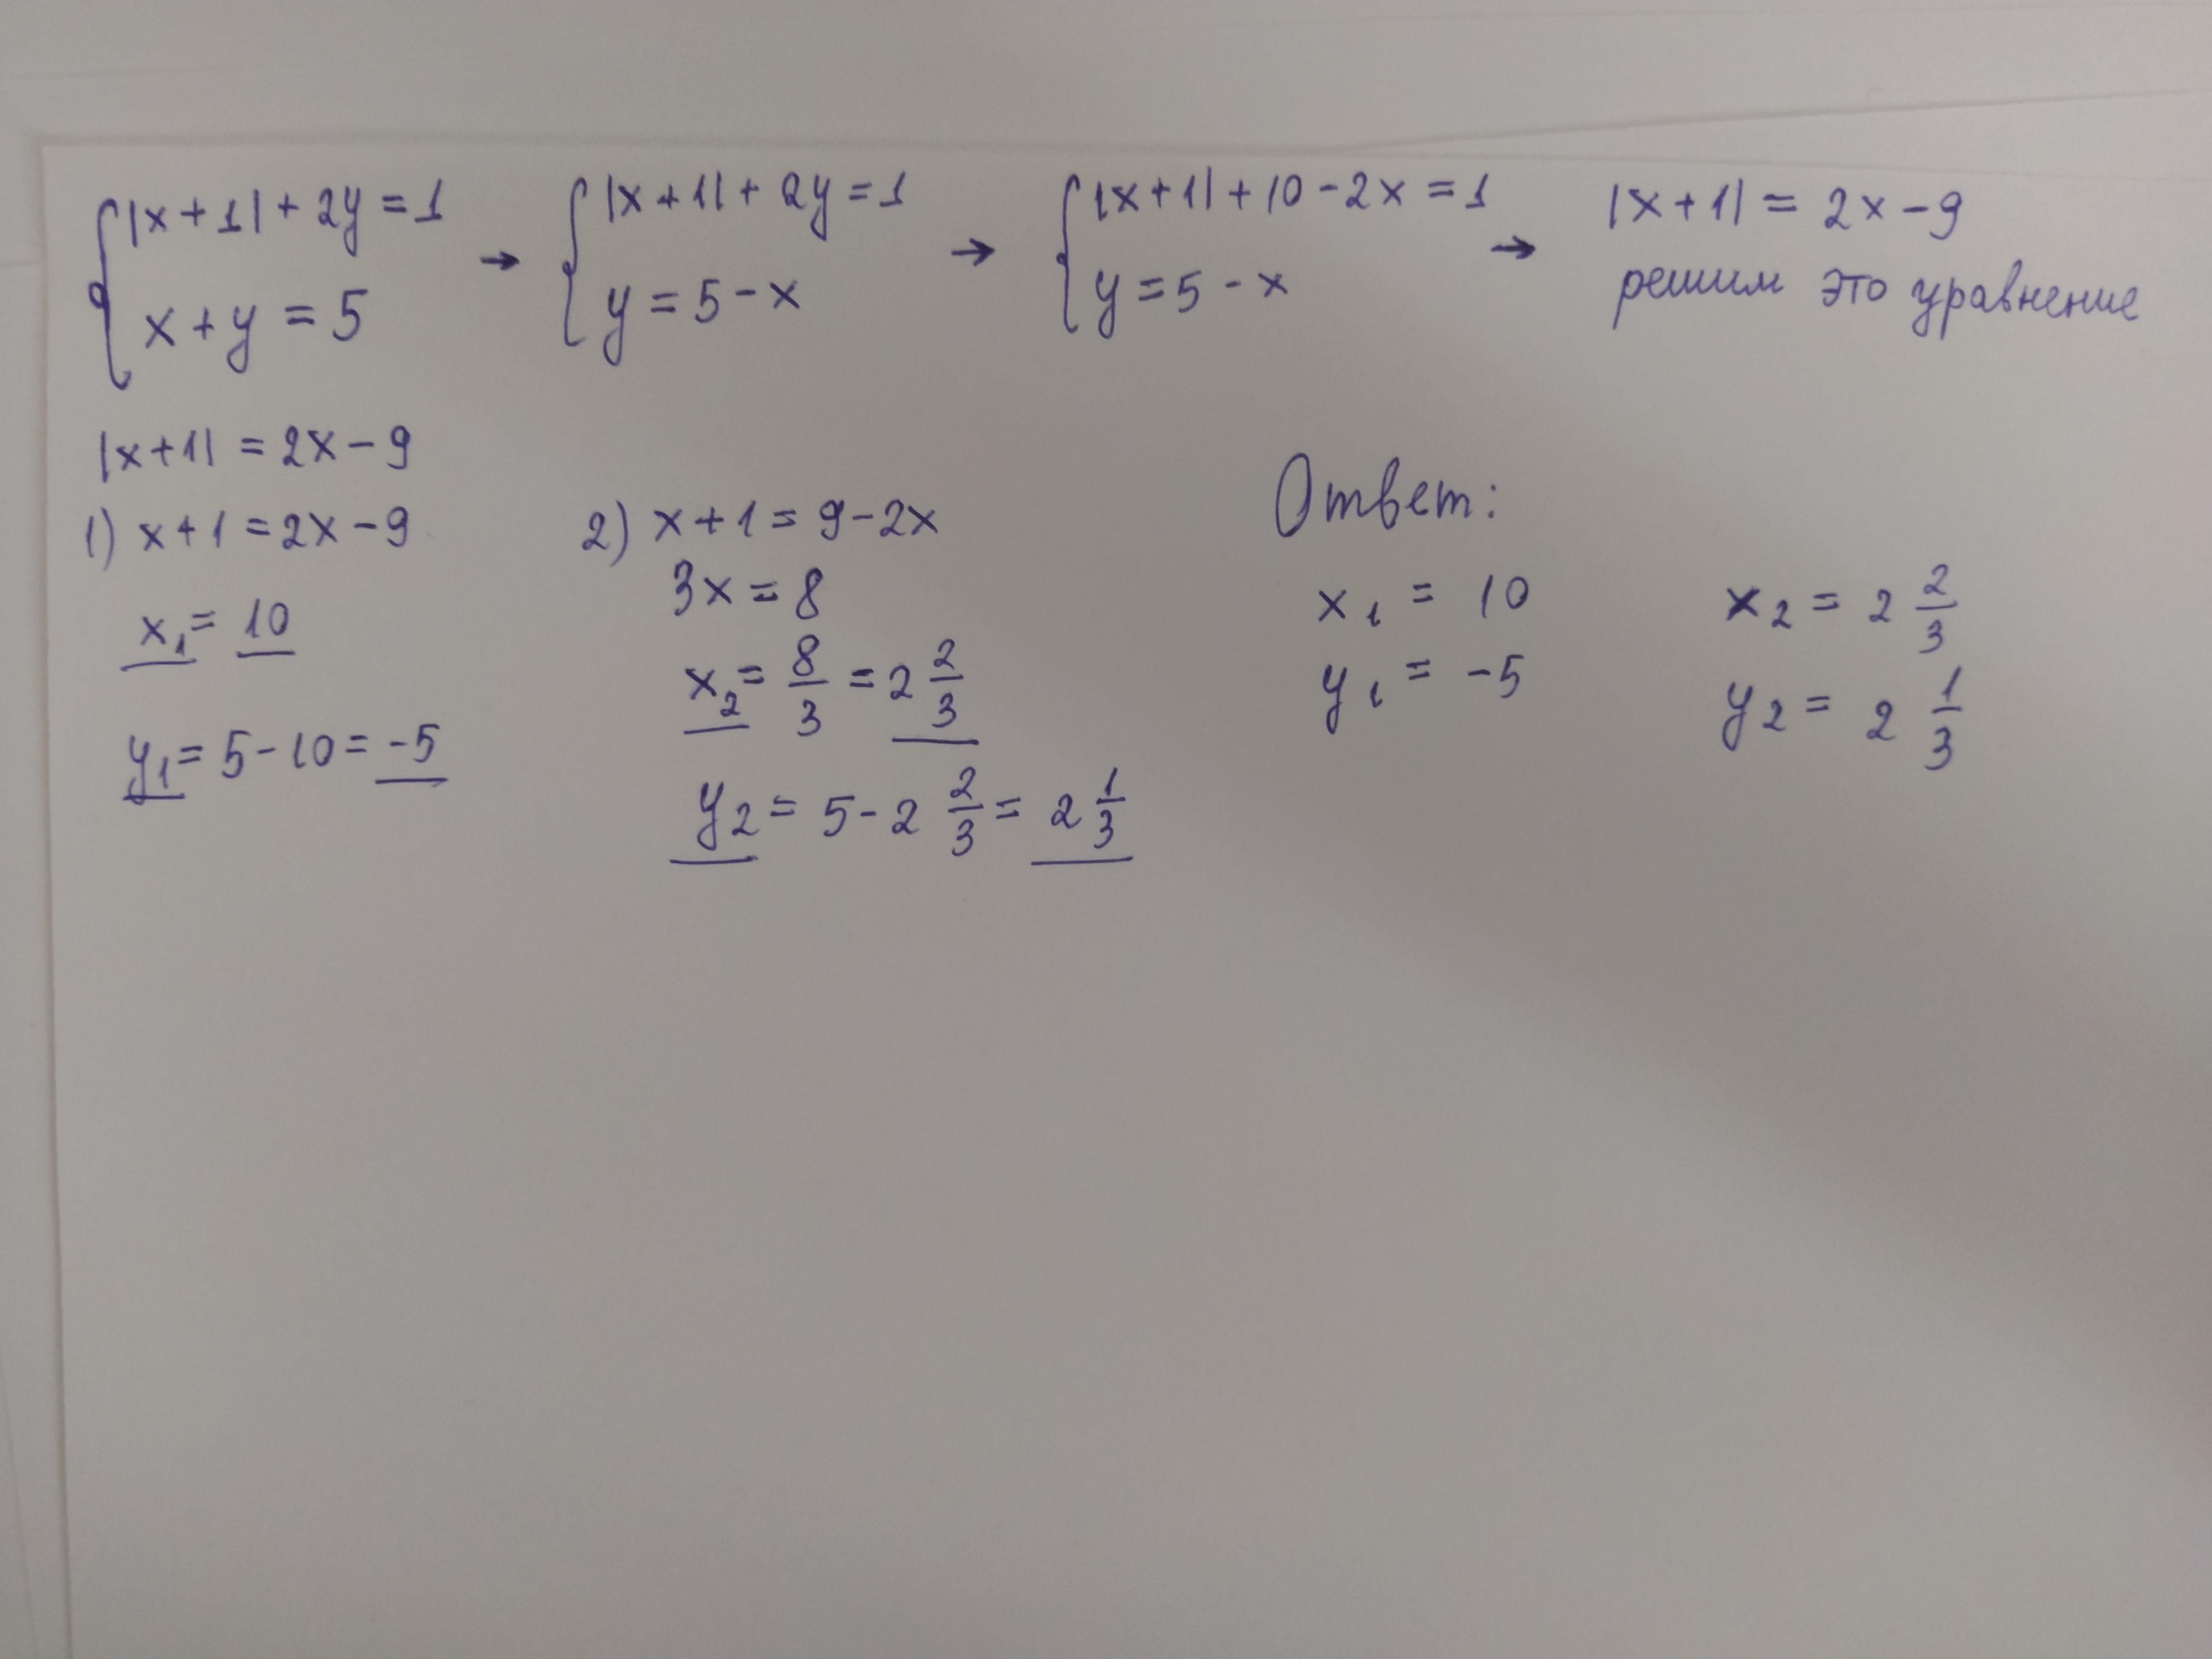 {|x+1|+2y=1 → {|x+1|+2y=1 → {|x+1|+10-2x=1 → |x+1|=2x-9
x+y=5 y=5-x y=5-x решим это уравнение
|x+1|=2x-9
1) x+1=2x-9
x₁=10
y₁=5-10=-5
2) x+1=9-2x
3x=8
x₂=8/3=2 2/3
y₂=5-2 2/3=2 1/3
Ответ:
x₁=10 x₂=2 2/3
y₁=-5 y₂=2 1/3